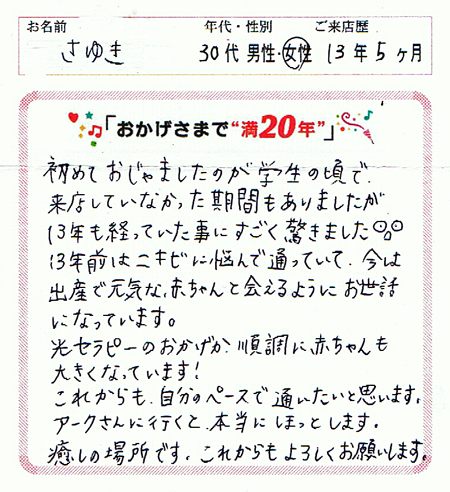 お名前 年代・性別 ご来店歴
さゆき 30代 男性・女性 13年5ヶ月
「おかげさまで“満20年”」
初めておじゃましたのが学生の頃で、
来店していなかった期間もありましたが
13年も経っていた事にすごく驚きました
13年前はニキビに悩んで通っていて、今は
出産で元気な赤ちゃんと会えるようにお世話
になっています。
光セラピーのおかげか、順調に赤ちゃんも
大きくなっています!
これからも、自分のペースで通いたいと思います。
アークさんに行くと、本当にほっとします。
癒しの場所です。これからもよろしくお願いします。